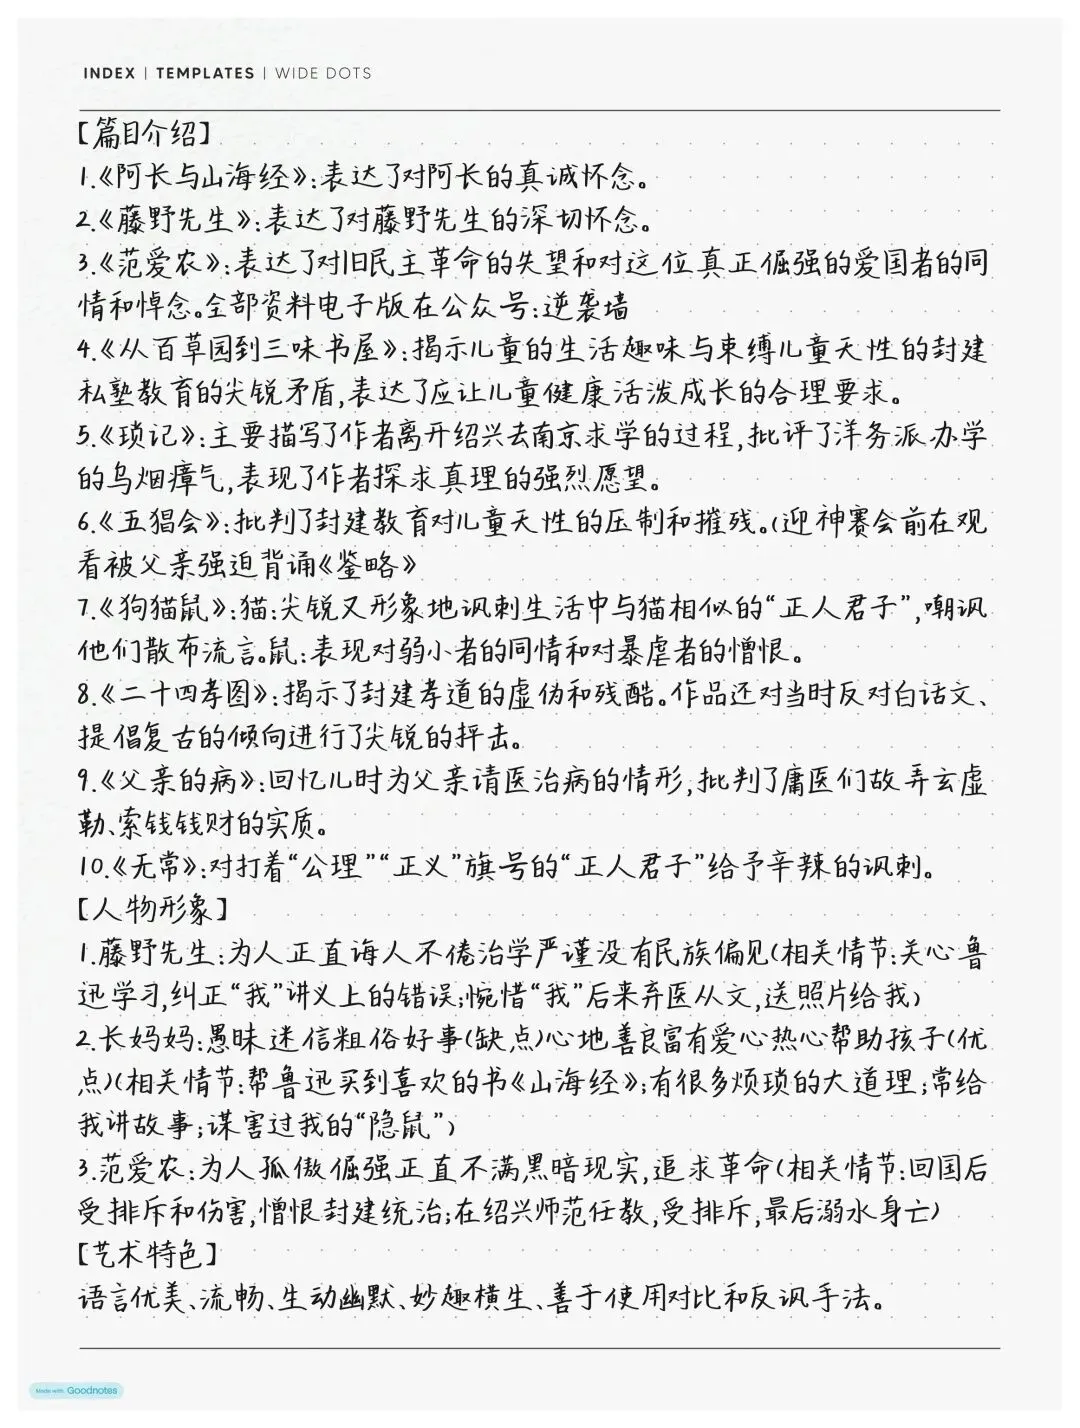 INDEX | TEMPLATES | WIDE DOTS
【篇目介绍】
1.《阿长与山海经》:表达了对阿长的真诚怀念。
2.《藤野先生》:表达了对藤野先生的深切怀念。
3.《范爱农》:表达了对旧民主革命的失望和对这位真正倔强的爱国者的同
情和悼念。全部资料电子版在公众号:逆袭墙
4.《从百草园到三味书屋》:揭示儿童的生活趣味与束缚儿童天性的封建
私塾教育的尖锐矛盾,表达了应让儿童健康活泼成长的合理要求。
5.《琐记》:主要描写了作者离开绍兴去南京求学的过程,批评了洋务派办学
的乌烟瘴气,表现了作者探求真理的强烈愿望。
6.《五猖会》:批判了封建教育对儿童天性的压制和摧残。(迎神赛会前在观
看被父亲强迫背诵《鉴略》
7.《狗猫鼠》:猫:尖锐又形象地讽刺生活中与猫相似的“正人君子”,嘲讽
他们散布流言。鼠:表现对弱小者的同情和对暴虐者的憎恨。
8.《二十四孝图》:揭示了封建孝道的虚伪和残酷。作品还对当时反对白话文、
提倡复古的倾向进行了尖锐的抨击。
9.《父亲的病》:回忆儿时为父亲请医治病的情形,批判了庸医们故弄玄虚
勒、索钱钱财的实质。
10.《无常》:对打着“公理”“正义”旗号的“正人君子”给予辛辣的讽刺。
【人物形象】
1.藤野先生:为人正直诲人不倦治学严谨没有民族偏见(相关情节:关心鲁
迅学习,纠正“我”讲义上的错误;惋惜“我”后来弃医从文,送照片给我)
2.长妈妈:愚昧迷信粗俗好事(缺点)心地善良富有爱心热心帮助孩子(优
点)(相关情节:帮鲁迅买到喜欢的书《山海经》;有很多烦琐的大道理;常给
我讲故事;谋害过我的“隐鼠”)
3.范爱农:为人孤傲倔强正直不满黑暗现实,追求革命(相关情节:回国后
受排斥和伤害,憎恨封建统治;在绍兴师范任教,受排斥,最后溺水身亡)
【艺术特色】
语言优美、流畅、生动幽默、妙趣横生、善于使用对比和反讽手法。
Made with Goodnotes